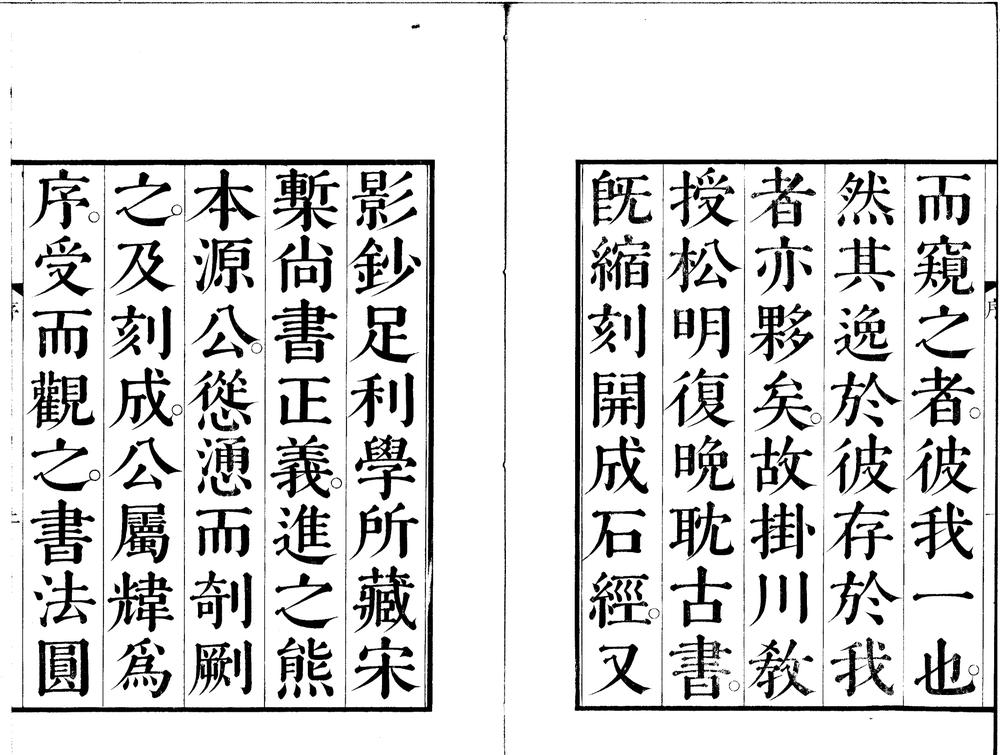 而窺之者。彼我一也。
然其逸於彼存於我
者亦夥矣。故掛川教
授松明復晚耽古書。
既縮刻開成石經。又
影鈔足利學所藏宋
槧尚書正義。進之熊
本源公。慫慂而剞劂
之。及刻成。公屬煒爲
序。受而觀之。書法圓
序